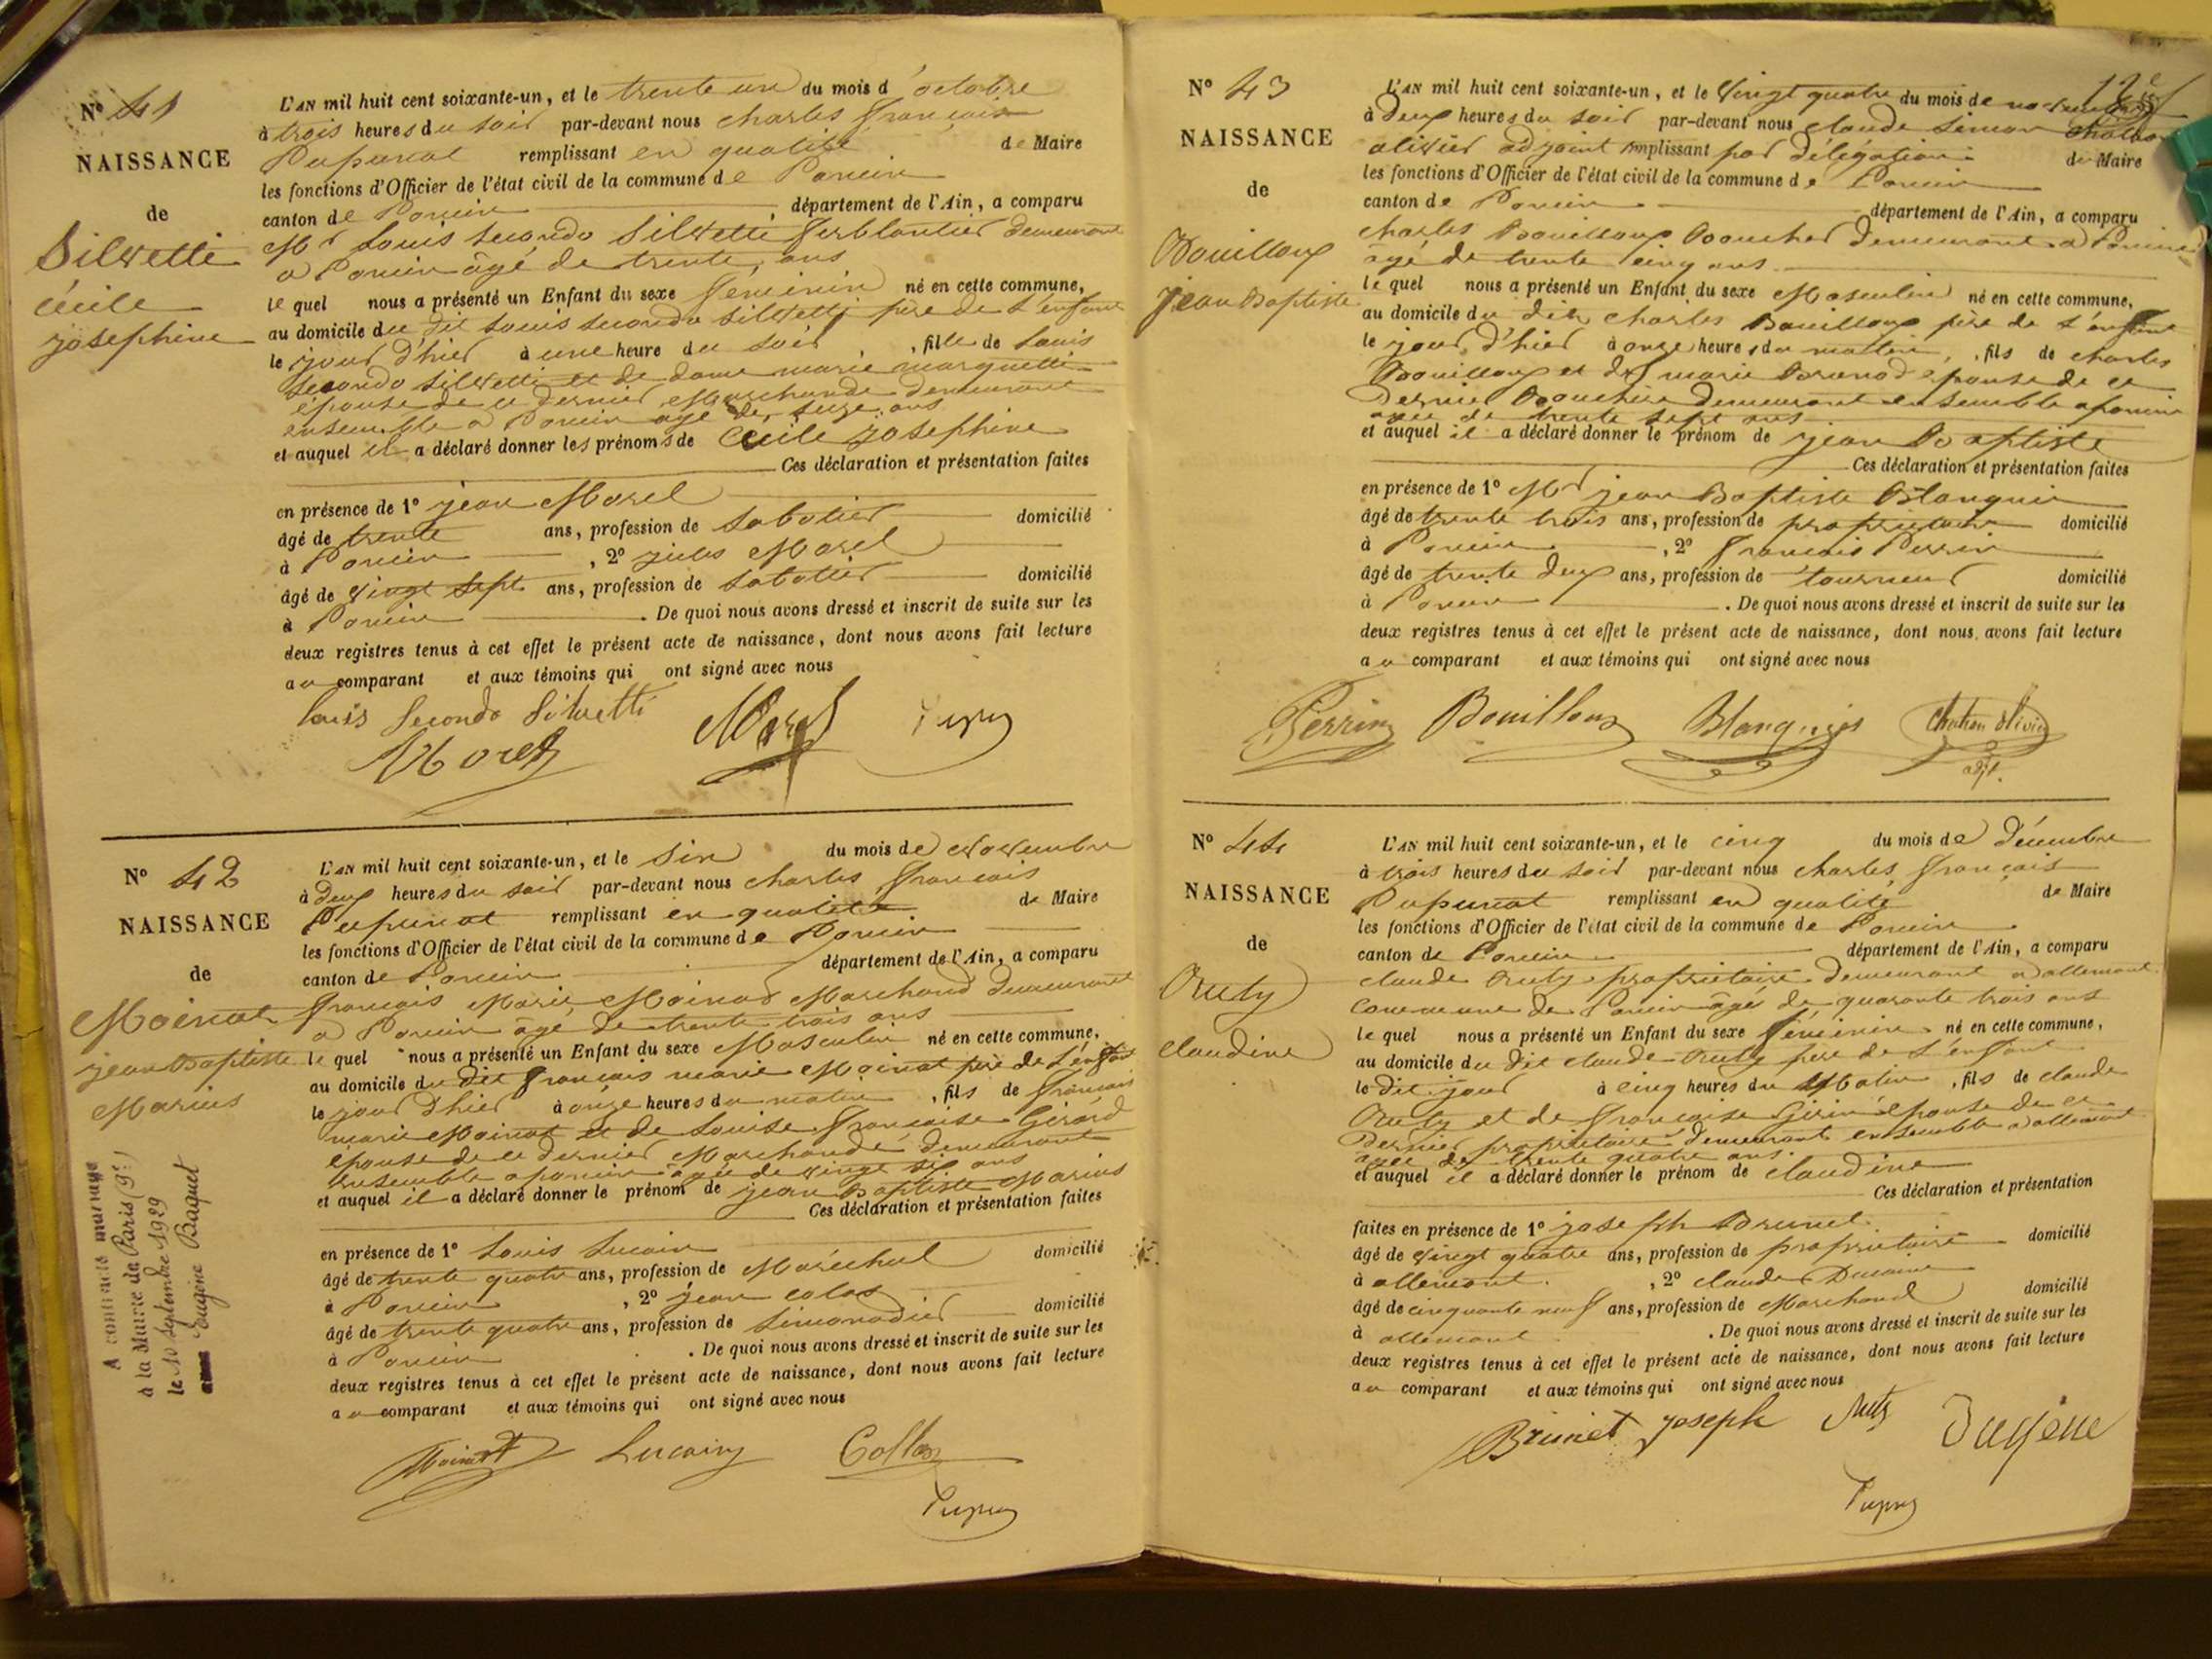 Nº 41
NAISSANCE
de
Silvetti
cécile
joséphine
L'AN mil huit cent soixante-un, et le trente un du mois d'octobre
à trois heures du soir par-devant nous charles françois
Pupunat remplissant en qualité de Maire
les fonctions d'Officier de l'état civil de la commune de Poncin
canton de Poncin département de l'Ain, a comparu
Mr Louis secondo Silvetti ferblantier demeurant
a Poncin âgé de trente ans
le quel nous a présenté un Enfant du sexe féminin né en cette commune,
au domicile du dit Louis secondo Silvetti père de l'enfant
le jour d'hier à une heure du soir, fille de Louis
secondo silvetti et de dame marie marquetti
épouse de ce dernier Marchande demeurant
ensemble a Poncin agé de seize ans
et auquel il a déclaré donner les prénoms de Cécile joséphine
Ces déclaration et présentation faites
en présence de 1º jean Morel
âgé de trente ans, profession de sabotier domicilié
à Poncin, 2º jules Morel
âgé de vingt sept ans, profession de sabotier domicilié
à Poncin. De quoi nous avons dressé et inscrit de suite sur les
deux registres tenus à cet effet le présent acte de naissance, dont nous avons fait lecture
au comparant et aux témoins qui ont signé avec nous
Louis Secondo Silvetti Morel
Morel
Nº 42
NAISSANCE
de
Moinat
jean Baptiste
Marius
A contracté mariage
à la Mairie de Paris (9e)
le 10 Septembre 1929
Eugénie Baquet
L'AN mil huit cent soixante-un, et le six du mois de Novembre
à deux heures du soir par-devant nous charles françois
Pupunat remplissant en qualité de Maire
les fonctions d'Officier de l'état civil de la commune de Poncin
canton de Poncin département de l'Ain, a comparu
françois Marie Moinat Marchand demeurant
a Poncin âgé de trente trois ans
le quel nous a présenté un Enfant du sexe Masculin né en cette commune,
au domicile du dit françois marie Moinat père de l'enfant
le jour d'hier à onze heures du matin, fils de françois
marie Moinat et de Louise françoise Girard
épouse de ce dernier Marchande demeurant
ensemble a poncin âgée de vingt six ans
et auquel il a déclaré donner le prénom de jean Baptiste Marius
Ces déclaration et présentation faites
en présence de 1º Louis Lucain
âgé de trente quatre ans, profession de Maréchal domicilié
à Poncin, 2º jean colas
âgé de trente quatre ans, profession de Limonadier domicilié
à Poncin. De quoi nous avons dressé et inscrit de suite sur les
deux registres tenus à cet effet le présent acte de naissance, dont nous avons fait lecture
au comparant et aux témoins qui ont signé avec nous
Moinat Lucain Collas
Nº 43
NAISSANCE
de
Bouilloux
jean Baptiste
L'AN mil huit cent soixante-un, et le vingt quatre du mois de novembre
à deux heures du soir par-devant nous claude simon chatton
olivier adjoint remplissant par délégation du Maire
les fonctions d'Officier de l'état civil de la commune de Poncin
canton de Poncin département de l'Ain, a comparu
charles Bouilloux Boucher demeurant a Poncin
âgé de trente cinq ans
le quel nous a présenté un Enfant du sexe Masculin né en cette commune,
au domicile du dit charles Bouilloux père de l'enfant
le jour d'hier à onze heures du matin, fils de charles
Bouilloux et de marie Brunod épouse de ce
Dernier Bouchère demeurant ensemble a poncin
agée de trente sept ans
et auquel il a déclaré donner le prénom de jean Baptiste
Ces déclaration et présentation faites
en présence de 1º Mr jean Baptiste Blanguin
âgé de trente trois ans, profession de propriétaire domicilié
à Poncin, 2º françois Perrin
âgé de trente deux ans, profession de tourneur domicilié
à Poncin. De quoi nous avons dressé et inscrit de suite sur les
deux registres tenus à cet effet le présent acte de naissance, dont nous avons fait lecture
au comparant et aux témoins qui ont signé avec nous
Perrin Bouilloux Chatton Olivier
adjt.
Nº 44
NAISSANCE
de
Ruty
claudine
L'AN mil huit cent soixante-un, et le cinq du mois de décembre
à trois heures du soir par-devant nous charles françois
Pupunat remplissant en qualité de Maire
les fonctions d'Officier de l'état civil de la commune de Poncin
canton de Poncin département de l'Ain, a comparu
claude Ruty propriétaire demeurant a allement
commune de Poncin âgé de quarante trois ans
le quel nous a présenté un Enfant du sexe féminin né en cette commune,
au domicile du dit claude Ruty père de l'enfant
le dit jour à cinq heures du Matin, fils de claude
Ruty et de françoise Guérin épouse de ce
Dernier propriétaire demeurant ensemble a allement
agée de trente quatre ans.
et auquel il a déclaré donner le prénom de claudine
Ces déclaration et présentation
faites en présence de 1º joseph Brunet
âgé de vingt quatre ans, profession de propriétaire domicilié
à allement, 2º claude
âgé de cinquante neuf ans, profession de Marchand domicilié
à allement. De quoi nous avons dressé et inscrit de suite sur les
deux registres tenus à cet effet le présent acte de naissance, dont nous avons fait lecture
au comparant et aux témoins qui ont signé avec nous
Brunet joseph Ruty